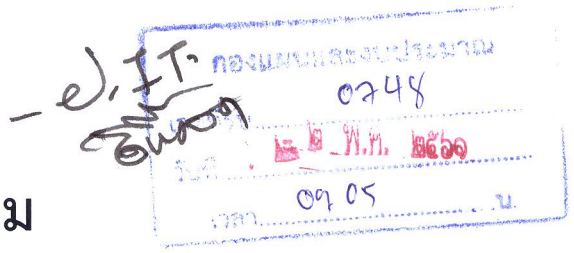 - ป. IT.
กองแผนและงบประมาณ
0748
วันที่ ๒๒ พ.ค. ๒๕๖๑
เวลา 09 05 น.
ม